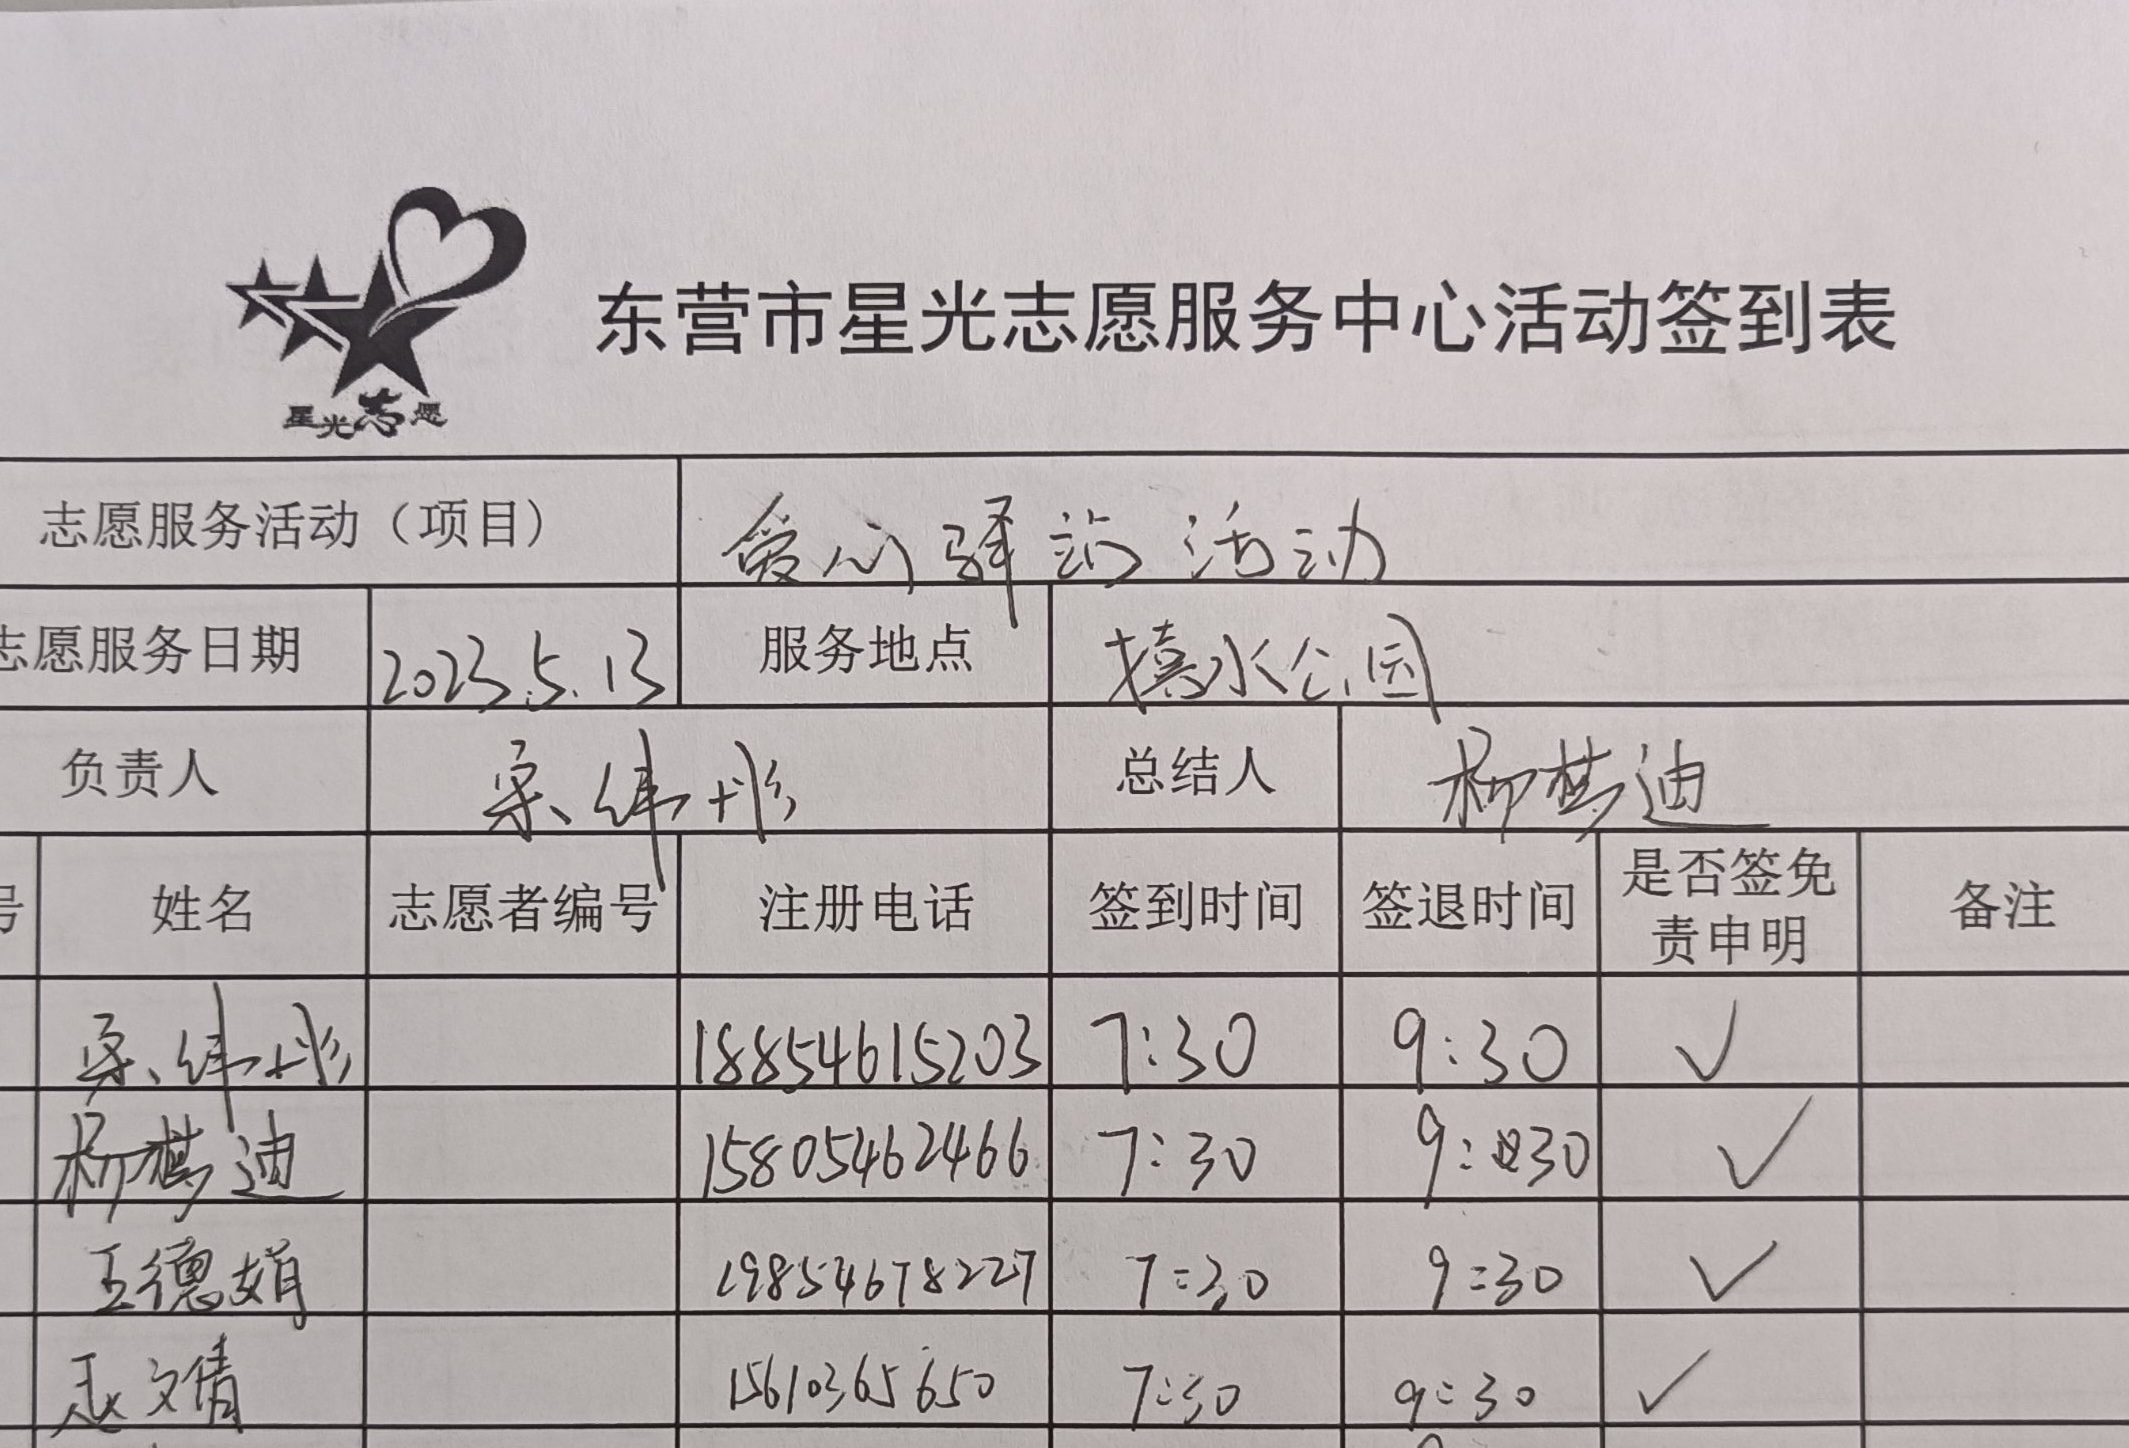 星光志愿
东营市星光志愿服务中心活动签到表
志愿服务活动（项目） 爱心驿站活动
志愿服务日期 2023.5.13 服务地点 揽水公园
负责人 宋纬彤 总结人 柳棋迪
号 姓名 志愿者编号 注册电话 签到时间 签退时间 是否签免责申明 备注
宋纬彤 18854615203 7:30 9:30 ✓
柳棋迪 15805462466 7:30 9:30 ✓
王德娟 19854678227 7:30 9:30 ✓
赵文倩 15610365650 7:30 9:30 ✓